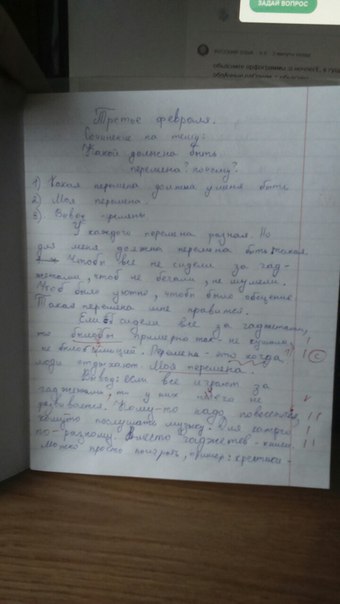 ЗАДАЙ ВОПРОС
Третье февраля.
Сочинение на тему:
Какой должна быть
перемена? почему?
1) Какая перемена должна у меня быть
2) Моя перемена.
3) Вывод
У каждого перемена разная. Но
для меня должна перемена быть такая.
Чтобы все не сидели за гад-
жетами, чтоб не бегали, не шумели.
Чтоб было уютно, чтобы было общение
Такая перемена мне нравится.
Если б сидели все за гаджетами,
то былобы примерно так - не
не былоб эмоций. Перемена - это когда
люди отдыхают. Моя перемена.
Вывод: если все играют за
гаджетами, то у них
Кому-то надо
послушать музыку. Для
по-разному. Вместо гаджетов - книги.
можно просто поиграть, пример: крестики-